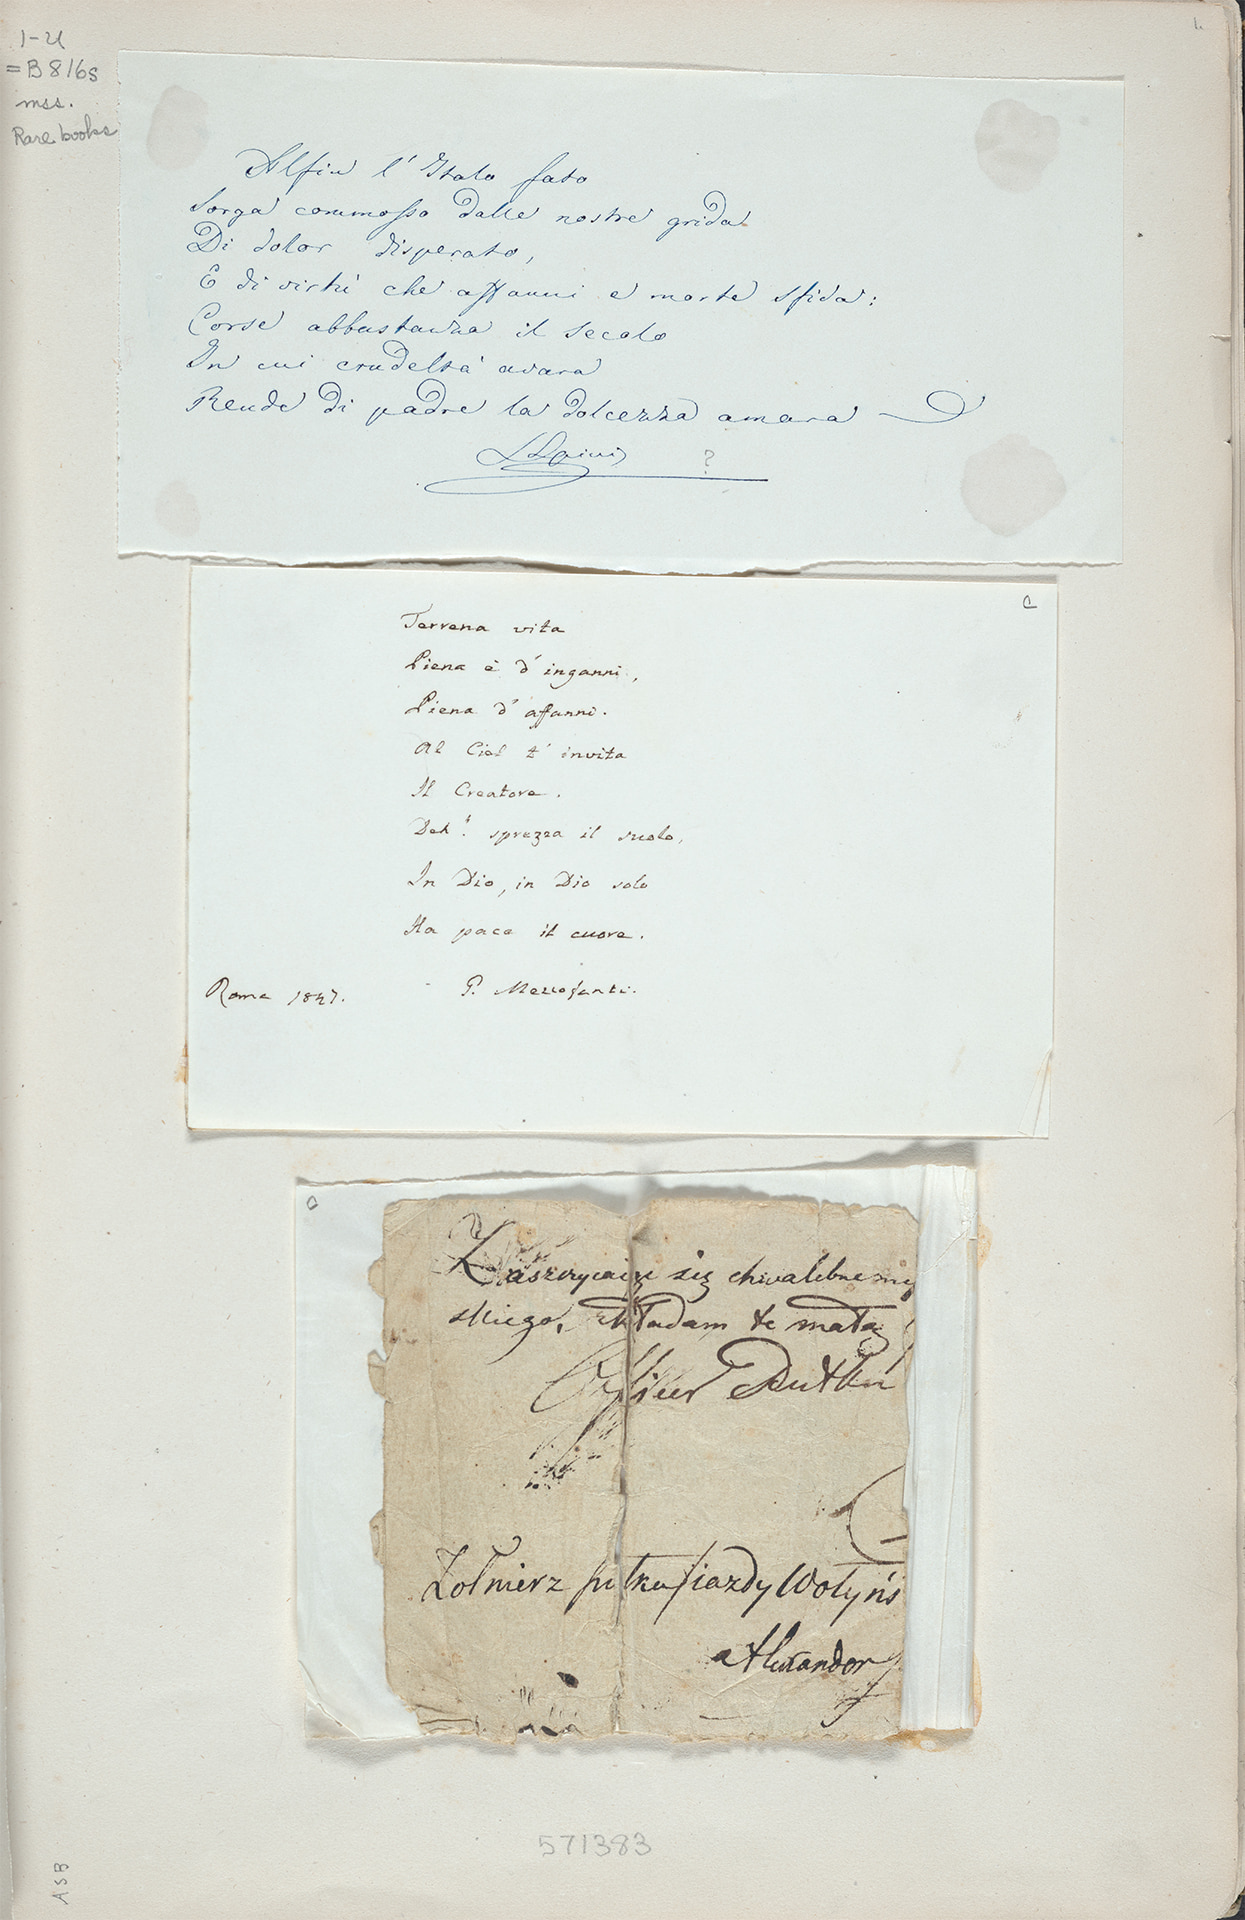 1-U
=B816s
mss.
Rare books
1.
Alfin l' Italo fato
Sorga commosso dalle nostre grida
Di dolor disperato,
E di virtù che affanni e morte sfida:
Corse abbastanza il secolo
In cui crudeltà avara
Rende di padre la dolcezza amara
?
C
Terrena vita
Piena è d' inganni,
Piena d' affanni.
Al Ciel t' invita
Il Creatore.
Deh! sprezza il suolo,
In Dio, in Dio solo
Ha pace il cuore.
Roma 1847. G. Mezzofanti.
C
Zaszczycaiąc się chwalebne
składam te małą
Żołnierz pułku Jazdy Wołyńs
Alexander
571383
ASB